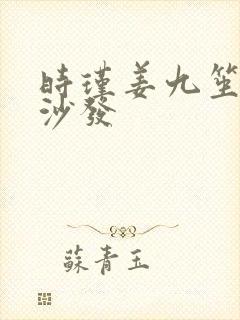 時瑾姜九笙
沙發
蘇青玉